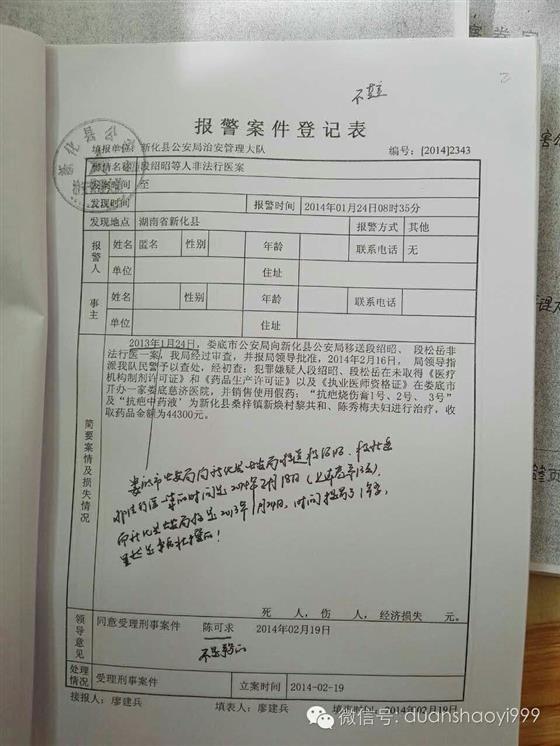 不真实
报警案件登记表
填报单位：新化县公安局治安管理大队 编号：[2014]2343
警情名称 段绍昭等人非法行医案
发案时间 至
发现时间 报警时间 2014年01月24日08时35分
发现地点 湖南省新化县 报警方式 其他
报警人 姓名 匿名 性别 年龄 联系电话 无
单位 住址
事主 姓名 性别 年龄 联系电话
单位 住址
简要案情及损失情况
2013年1月24日，娄底市公安局向新化县公安局移送段绍昭、段松岳非
法行医一案，我局经过审查，并报局领导批准，2014年2月16日，局领导指
派我队民警予以查处，经初查：犯罪嫌疑人段绍昭、段岳在未取得《医疗
机构制剂许可证》和《药品生产许可证》以及《执业医师资格证》在娄底市
开办一家娄底慈济医院，并销售使用假药：“抗疤烧伤膏1号、2号、3号”
及“抗疤中药液”为新化县桑梓镇新焕村黎共和、陈秀梅夫妇进行治疗，收
取药品金额为44300元。
娄底市公安局向新化县公安局移送段绍昭、段松岳
非法行医一案的时间是2014年2月18日
而新化县公安局
死 人，伤 人，经济损失 元。
领导意见 同意受理刑事案件 陈可求 2014年02月19日
处理情况 受理刑事案件 立案时间 2014-02-19
接报人：廖建兵 填表人：廖建兵 填表时间：2014年02月19日
微信号：duanshaoyi999